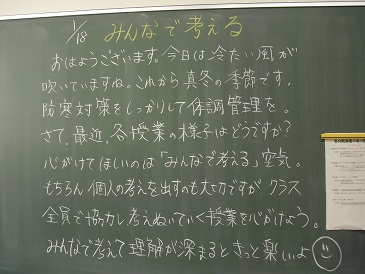 1/18 みんなで考える
おはようございます。今日は冷たい風が
吹いていますね。これから真冬の季節です。
防寒対策をしっかりして体調管理を。
さて、最近、各授業の様子はどうですか?
心がけてほしいのは「みんなで考える」空気。
もちろん個人の考えを出すのも大切ですがクラス
全員で協力し考えぬいていく授業を心がけよう。
みんなで考えて理解が深まるときっと楽しいよ